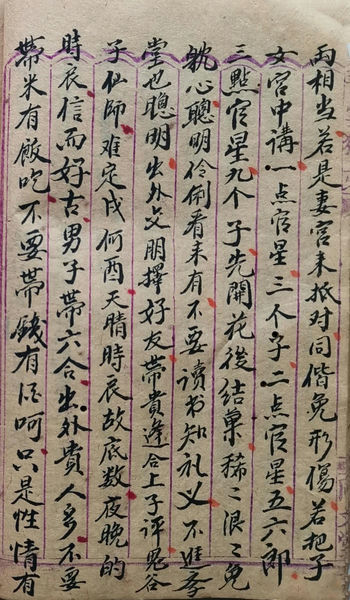 两相当若是妻宫来抵对同偕免形傷若把子
女宫中講一点官星三个子二点官星五六郎
三點官星九个子先開花後结菓稀〻浪〻免
躭心聰明伶俐看来有不要读书知礼义不進孝
堂也聰明出外交朋擇好友带貴逢合上子评鬼谷
子仙師难定戌何酉天晴時辰故底数夜晚的
時辰信而好古男子带六合出外貴人多不要
帶米有飯吃不要带錢有酒呵只是性情有